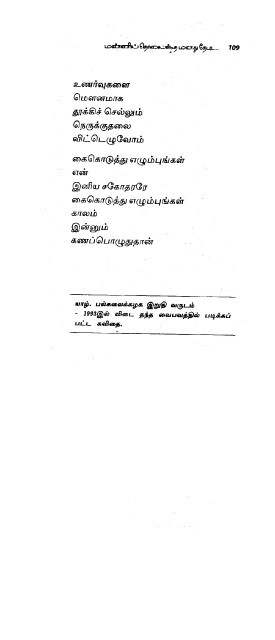 மண்ணில் தொலைந்த மனது தேடி... 109
உணர்வுகளை
மௌனமாக
தூக்கிச் செல்லும்
நெருக்குதலை
விட்டெழுவோம்
கைகொடுத்து எழும்புங்கள்
என்
இனிய சகோதரரே
கைகொடுத்து எழும்புங்கள்
காலம்
இன்னும்
கணப்பொழுதுதான்
யாழ். பல்கலைக்கழக இறுதி வருடம்
- 1993இல் விடை தந்த வைபவத்தில் படிக்கப்
பட்ட கவிதை.